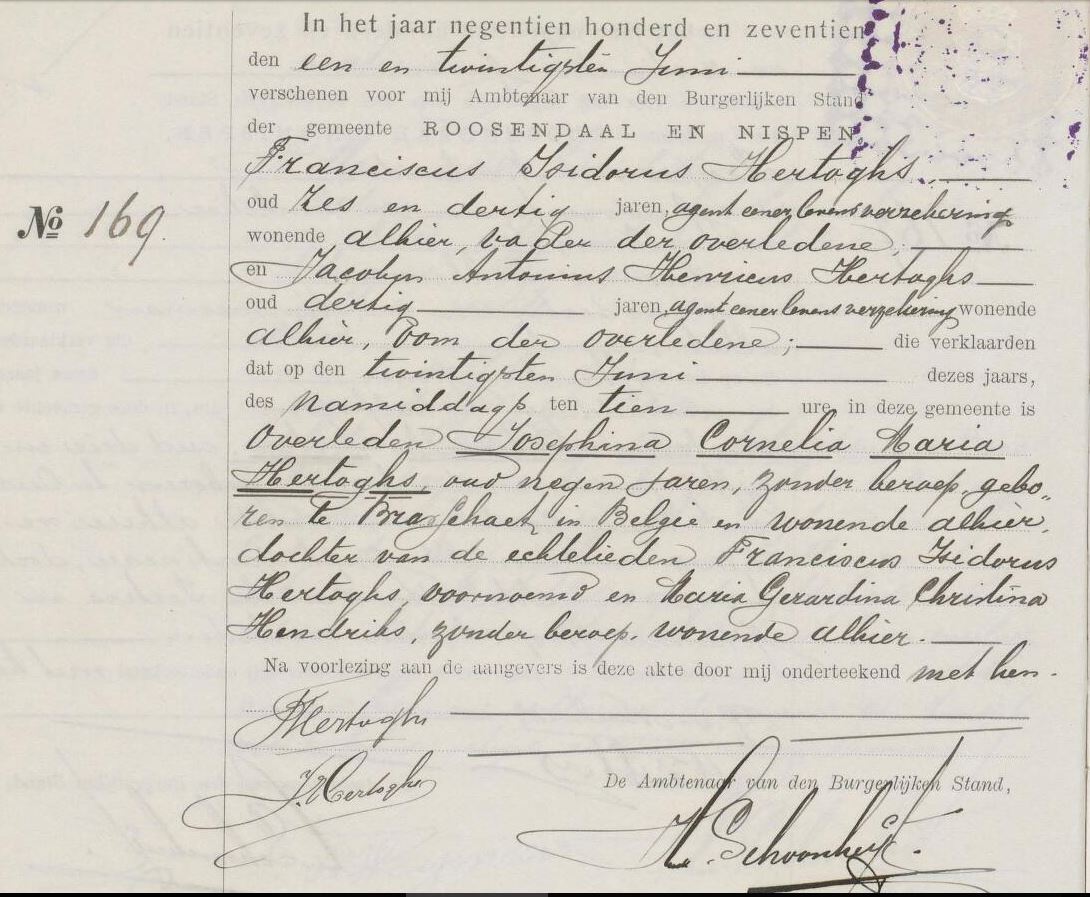 In het jaar negentien honderd en zeventien
den een en twintigsten Juni
verschenen voor mij Ambtenaar van den Burgerlijken Stand
der gemeente ROOSENDAAL EN NISPEN
Franciscus Isidorus Hertoghs
oud zes en dertig jaren, agent eener levensverzekering
No 169.
wonende alhier, vader der overledene,
en Jacobus Antonius Henricus Hertoghs
oud dertig jaren, agent eener levensverzekering wonende
alhier, oom der overledene; die verklaarden
dat op den twintigsten Juni dezes jaars,
des namiddags ten tien ure, in deze gemeente is
overleden Josephina Cornelia Maria
Hertoghs, oud negen jaren, zonder beroep, gebo„
ren te Brasschaet, in België en wonende alhier,
dochter van de echtelieden Franciscus Isidorus
Hertoghs, voornoemd en Maria Gerardina Christina
Hendriks, zonder beroep, wonende alhier.
Na voorlezing aan de aangevers is deze akte door mij onderteekend met hen.
Hertoghs
J. Hertoghs
De Ambtenaar van den Burgerlijken Stand,